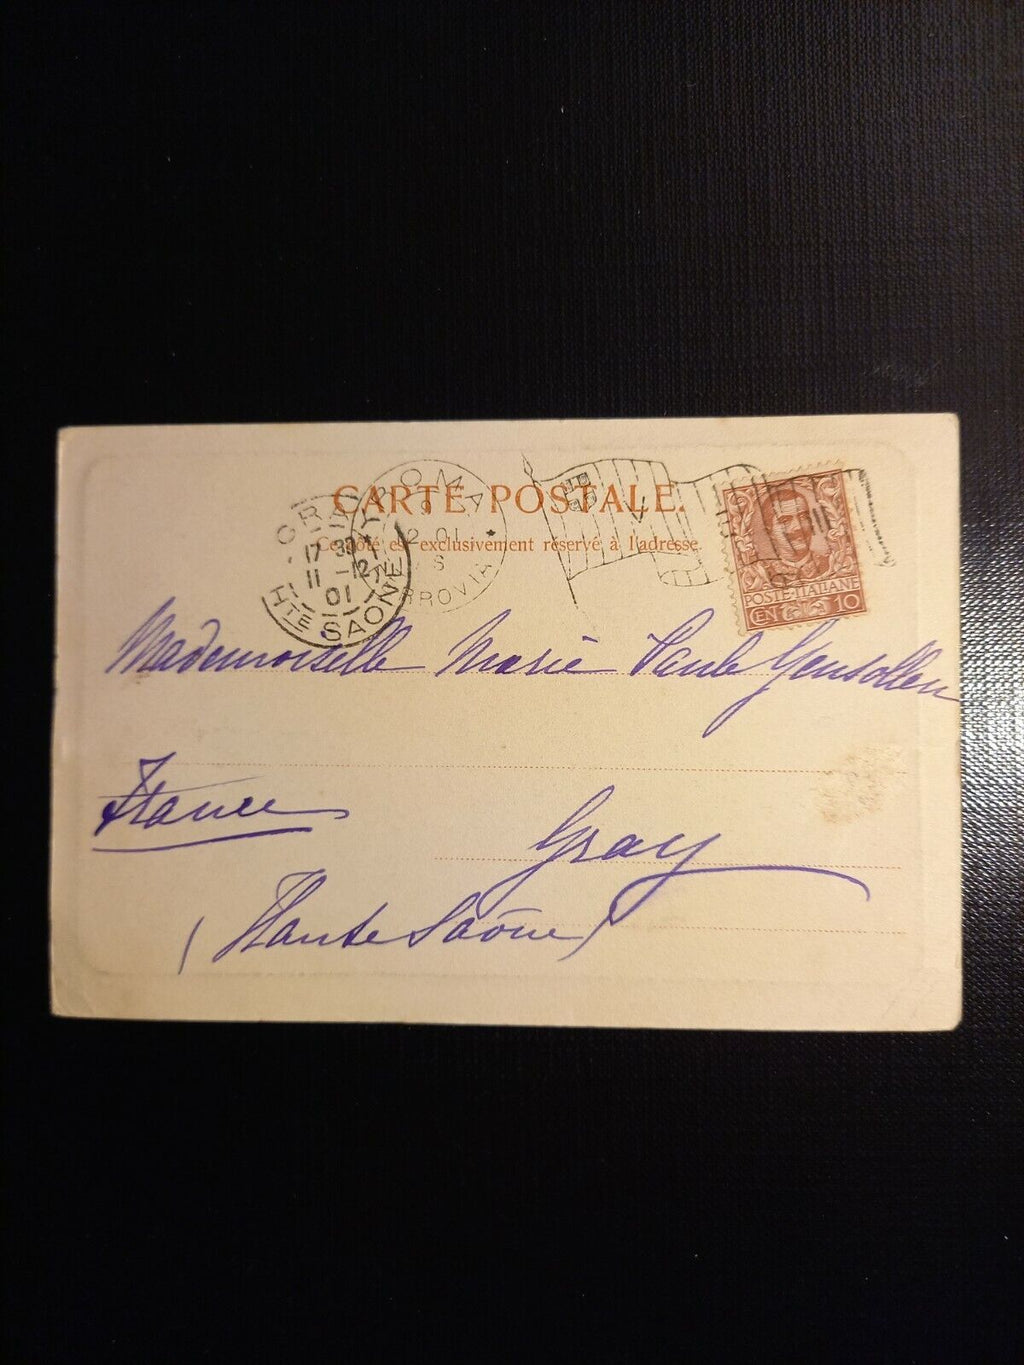 CARTE POSTALE.
Ce côté est exclusivement réservé à l'adresse
ROMA
9
12 01
S
FERROVIA
GRAY
17 30
11 -12
01
HTE SAONE
VERE III
POSTE ITALIANE
CEN 10
Mademoiselle Marie Paule Gensollen
France
Gray
(Haute Saône)